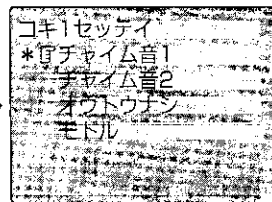 コキ1セッテイ
*☞チャイム音1
チャイム音2
オウトウナシ
モドル